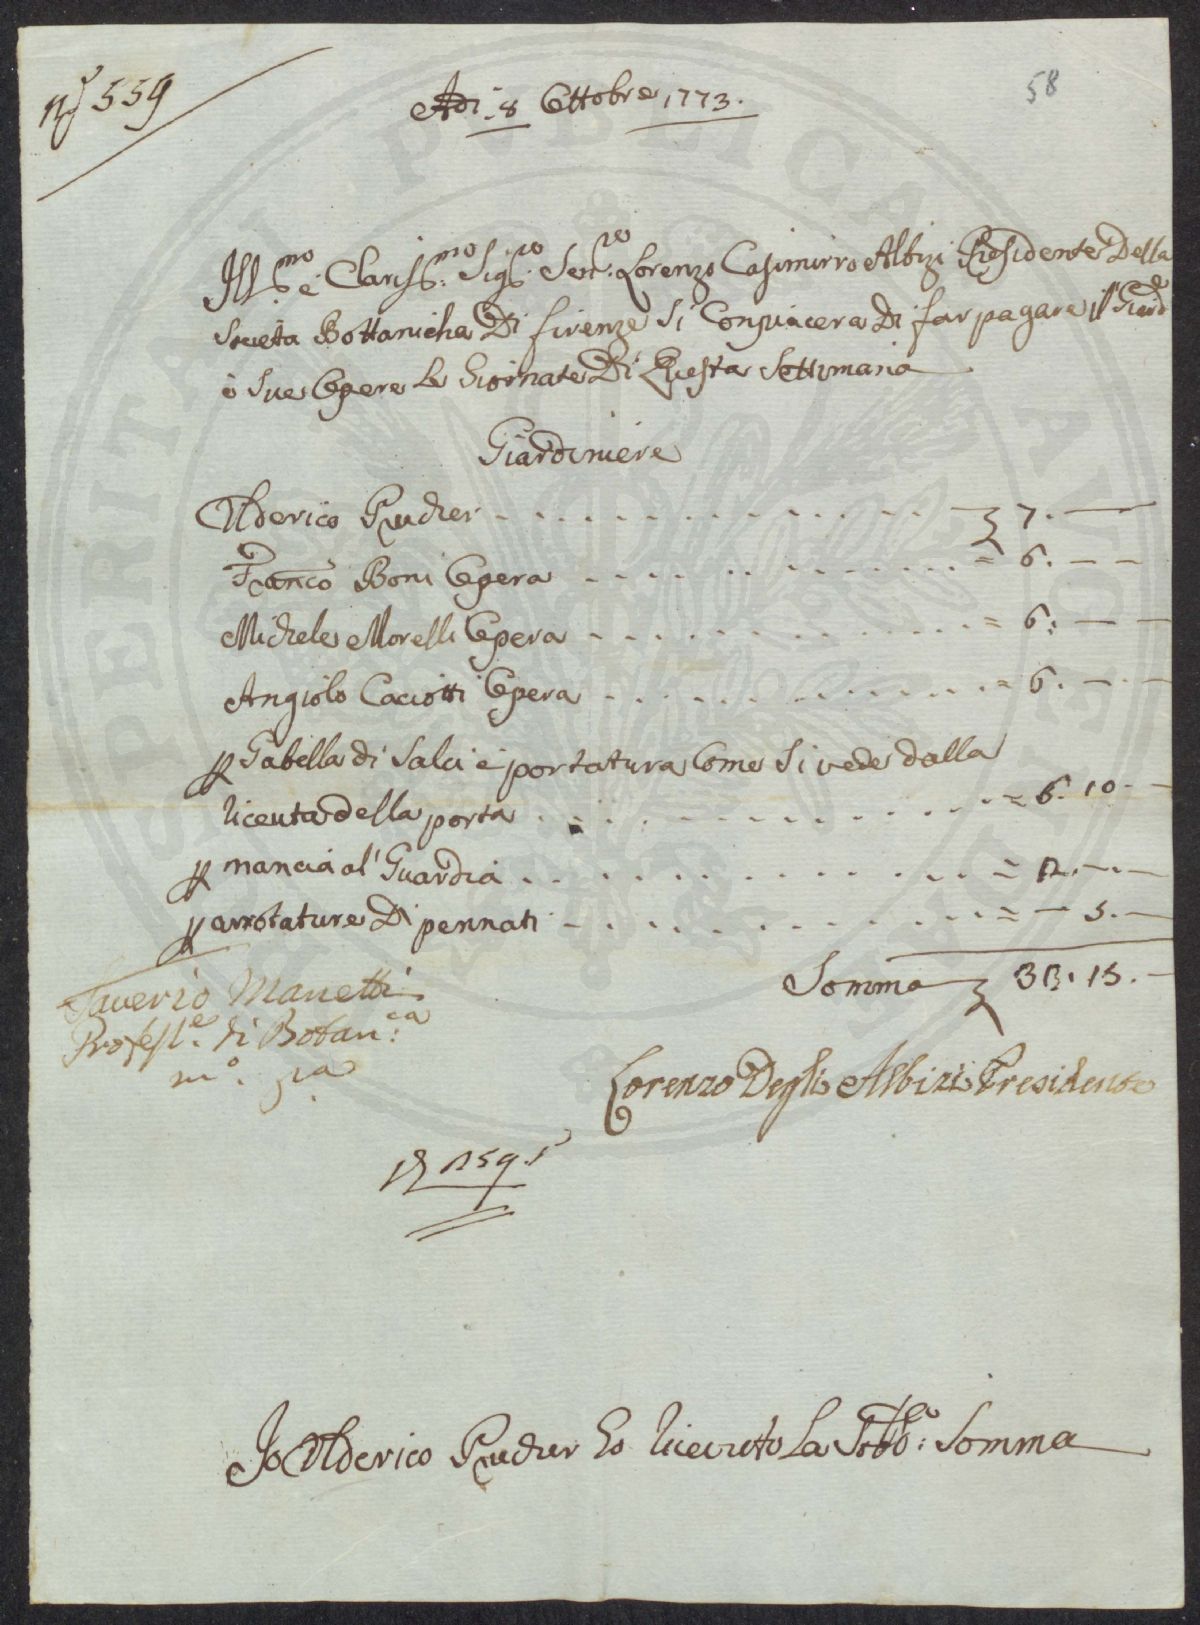 N.º 559
58
Adi 8 Ottobre 1773.
Ill.mo e Clariss.mo Sig.re Sen.re Lorenzo Casimirro Albizi Presidente Della
Società Bottanicha Di firenze Si Conpiacera Di far pagare il Giard.e
e Sue Opere Le Giornate Di Questa Settimana
Giardiniere
Ulderico Prucher - - - 7. —
Franco Boni Opera - - - = 6. — —
Michele Morelli Opera - - - = 6: — —
Angiolo Caciotti Opera - - - = 6. — —
p Gabella di Salci e portatura Come Si vede dalla
riceuta della porta - - - = 6. 10. —
p mancia al' Guardia - - - = 2. — —
p arrotature Di pennati - - - = — 5. —
Somma 33. 15. —
Saverio Manetti
Profess.e di Botan.ca
m.o pa
Lorenzo Degli Albizi Presidente
259.
Io Ulderico Prucher ho riceuto La Sodd.a Somma
SPERITAN PVBLICA AVCTA